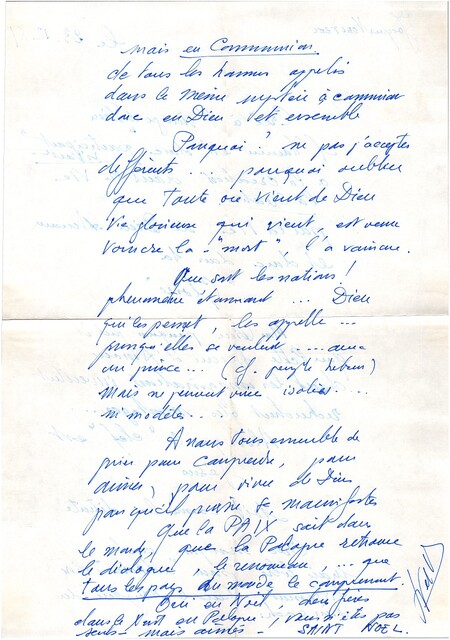 mais en Communion
de tous les hommes appelés
dans le même mystère à communion
donc en Dieu et ensemble
Pourquoi ? ne pas s'accepter
différents . . . pourquoi oublier
que toute vie vient de Dieu
Vie glorieuse qui vient, est venue
vaincre la "mort", l'a vaincue.
Que sont les nations !
phénomène étonnant .... Dieu
qui les permet, les appelle ...
puisqu'elles se veulent ..... avec
un prince ... (cf. peuple hébreu)
mais ne peuvent vivre isolées . . . .
ni modèles . . .
A nous tous ensemble de
prier pour comprendre, pour
aimer, pour vivre de Dieu
pour qu'il puisse se manifester
Que la PAIX soit dans
le monde, que la Pologne retrouve
le dialogue, le renouveau, ... que
tous les pays du monde le comprennent.
Oui en Noël, chers frères
dans le Nord en Pologne, vous n'êtes pas
seuls - mais aimés - SAINT NOEL.